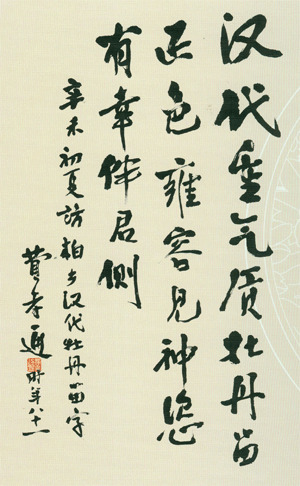 汉代重气质牡丹留
正色雍容见神恣
有幸伴君侧
辛未初夏访柏乡汉代牡丹留字
费孝通 时年八十一